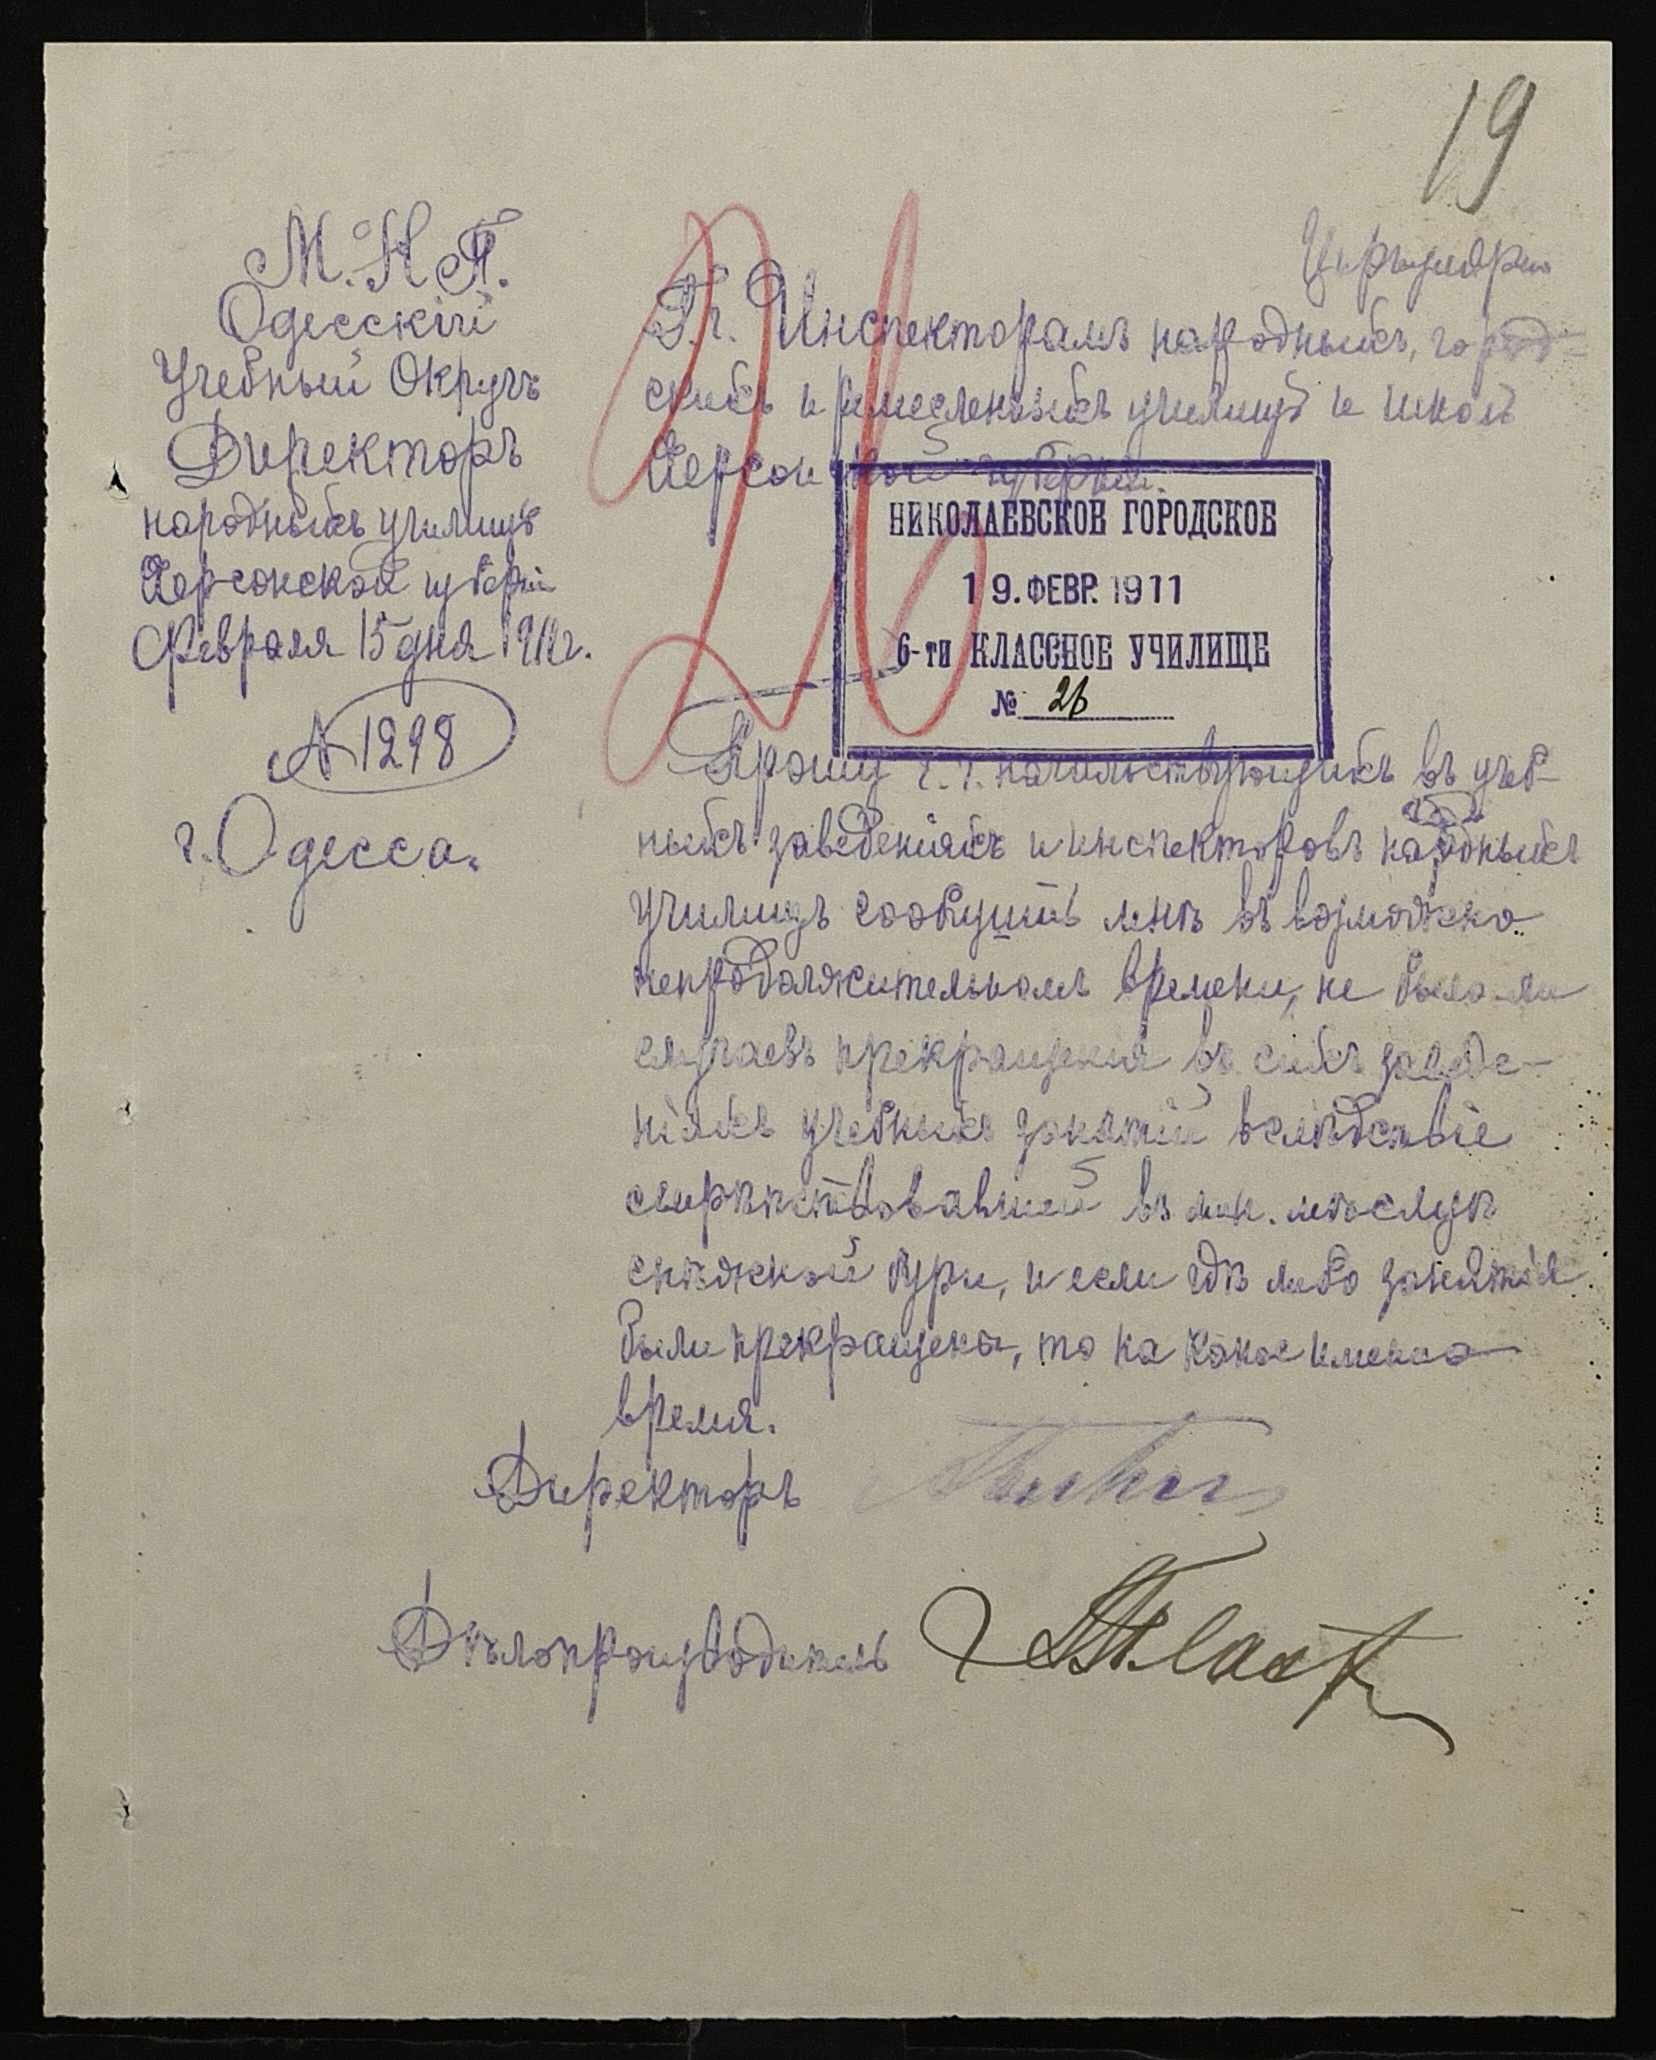 19
М. Н. П.
Одесскій
Учебный Округъ
Директоръ
народныхъ училищъ
Херсонской губерніи
Февраля 15 дня 1911 г.
№ 1298
г. Одесса.
Циркулярно
Г.г. Инспекторамъ народныхъ, город-
скихъ и ремесленныхъ училищъ и школъ
Херсонской губерніи.
НИКОЛАЕВСКОЕ ГОРОДСКОЕ
19. ФЕВР. 1911
6-ти КЛАССНОЕ УЧИЛИЩЕ
№ 26
26
Прошу г.г. начальствующихъ въ учеб-
ныхъ заведеніяхъ и инспекторовъ народныхъ
училищъ сообщить мнѣ въ возможно
непродолжительномъ времени, не было-ли
случаевъ прекращенія въ сихъ заведе-
ніяхъ учебныхъ занятій вслѣдствіе
свирѣпствовавшей въ мин. мѣсяцѣ
снѣжной бури, и если гдѣ либо занятія
были прекращены, то на какое именно
время.
Директоръ
Дѣлопроизводитель